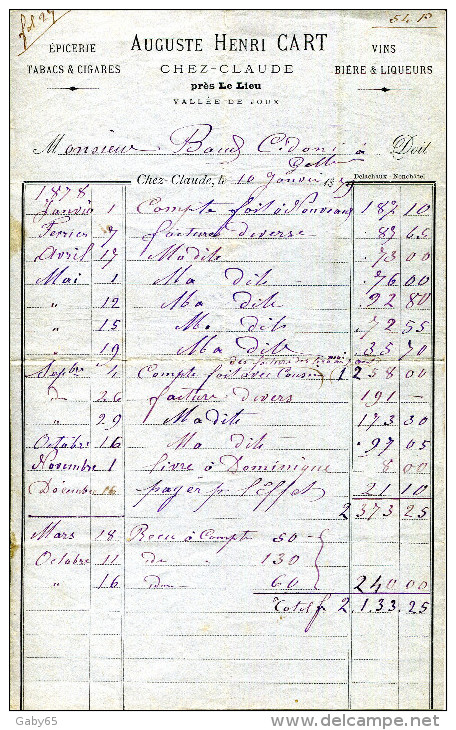 fol 27
54 F
ÉPICERIE
TABACS & CIGARES
AUGUSTE HENRI CART
CHEZ-CLAUDE
près Le Lieu
VALLÉE DE JOUX
VINS
BIÈRE & LIQUEURS
Monsieur Baud à Doit
Chez-Claude, le 10 Janvier 1879
Delachaux - Neuchâtel
1878
Janvier 1 Compte fait à Nouveau 187 10
Fevrier 7 facture diverse 83 65
Avril 17 Ma dite 73 00
Mai 1 Ma dite 76 00
" 12 Ma dite 92 80
" 15 Ma dite 72 55
" 19 Ma dite 35 70
Septbre 4 Compte fait avec Cousin 1 258 00
" 26 facture divers 191 –
" 29 Ma dite 173 30
Octobre 16 Ma dite 97 05
Novembre 1 livré à Dominique 8 00
Décembre 16 payér p. l'effet 21 10
2 373 25
Mars 18 Recu à Compte 50 –
Octobre 11 id 130
" 16 id 60 240 00
Total f 2.133.25
Gaby65
www.delcampe.net